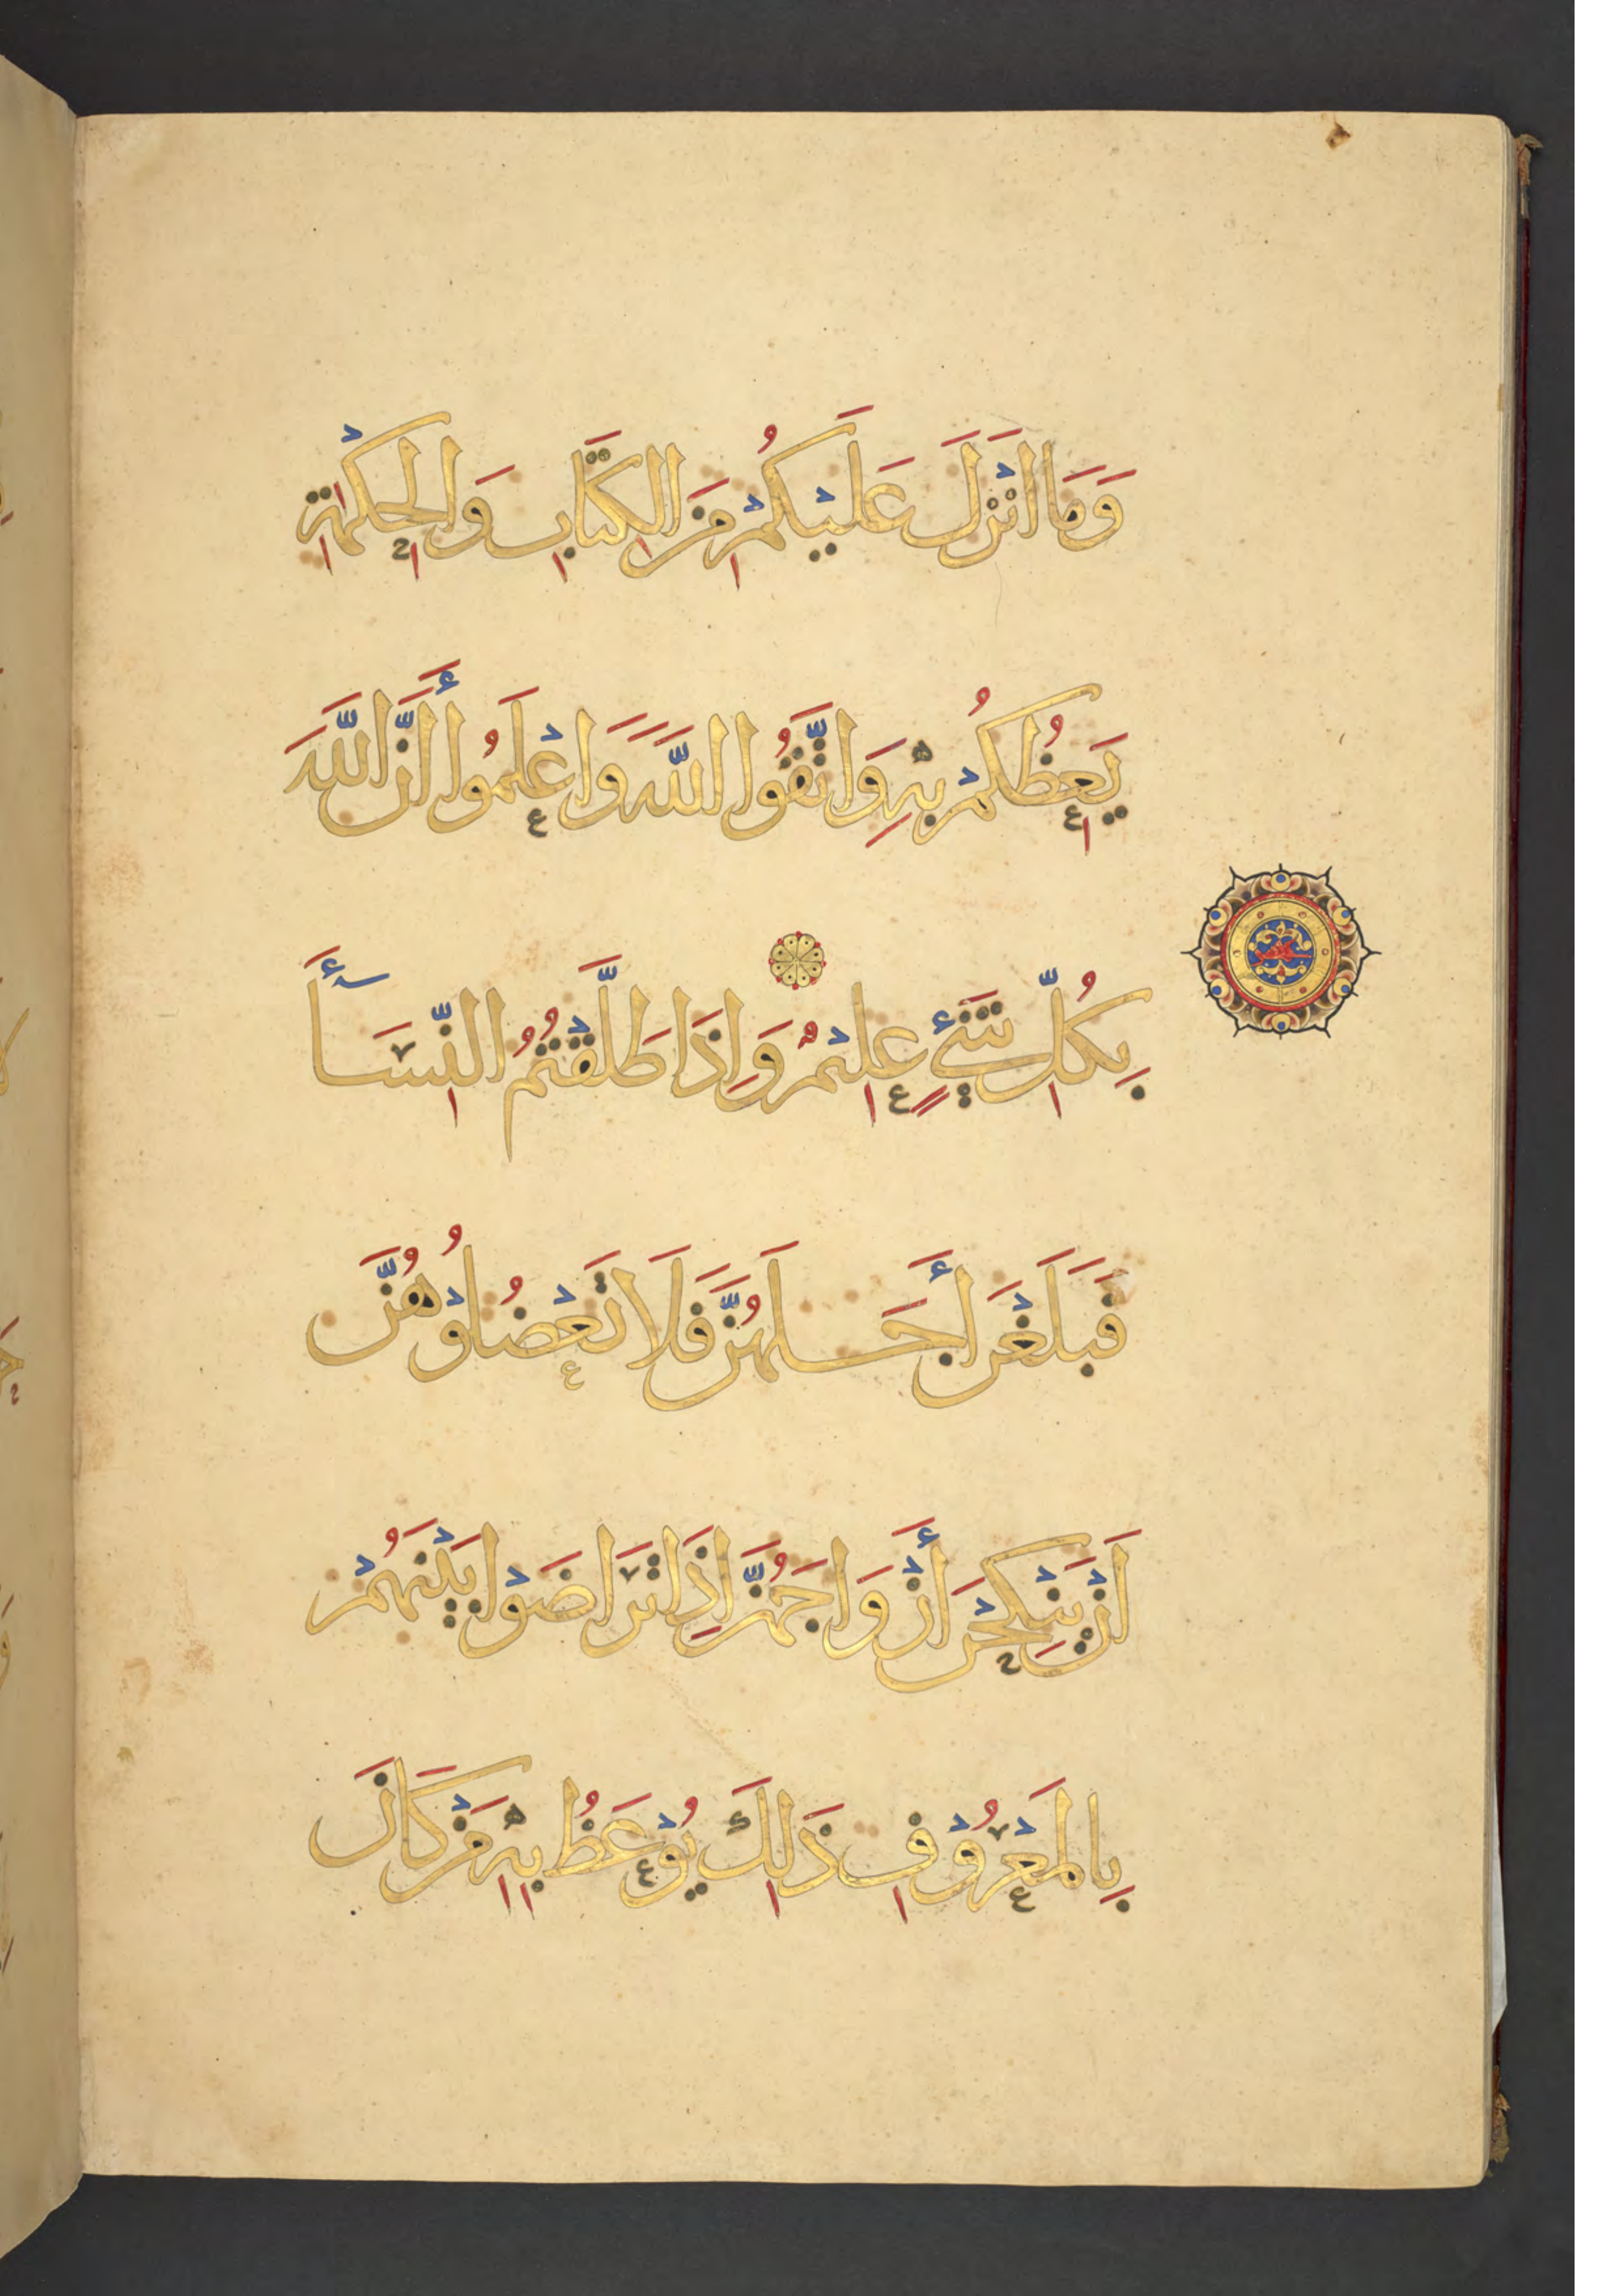 وَمَا انْزَلَ عَلَيْكُمْ مِنَ الْكِتَابِ وَالْحِكْمَةِ
يَعِظُكُمْ بِهِ وَاتَّقُوا اللَّهَ وَاعْلَمُوا أَنَّ اللَّهَ
بِكُلِّ شَيْءٍ عَلِيمٌ وَإِذَا طَلَّقْتُمُ النِّسَآءَ
فَبَلَغْنَ أَجَلَهُنَّ فَلَا تَعْضُلُوْهُنَّ
اَنْ يَنْكِحْنَ أَزْوَاجَهُنَّ اِذَا تَرَاضَوْا بَيْنَهُمْ
بِالْمَعْرُوْفِ ذَلِكَ يُوْعَظُ بِهِ مَنْ كَانَ